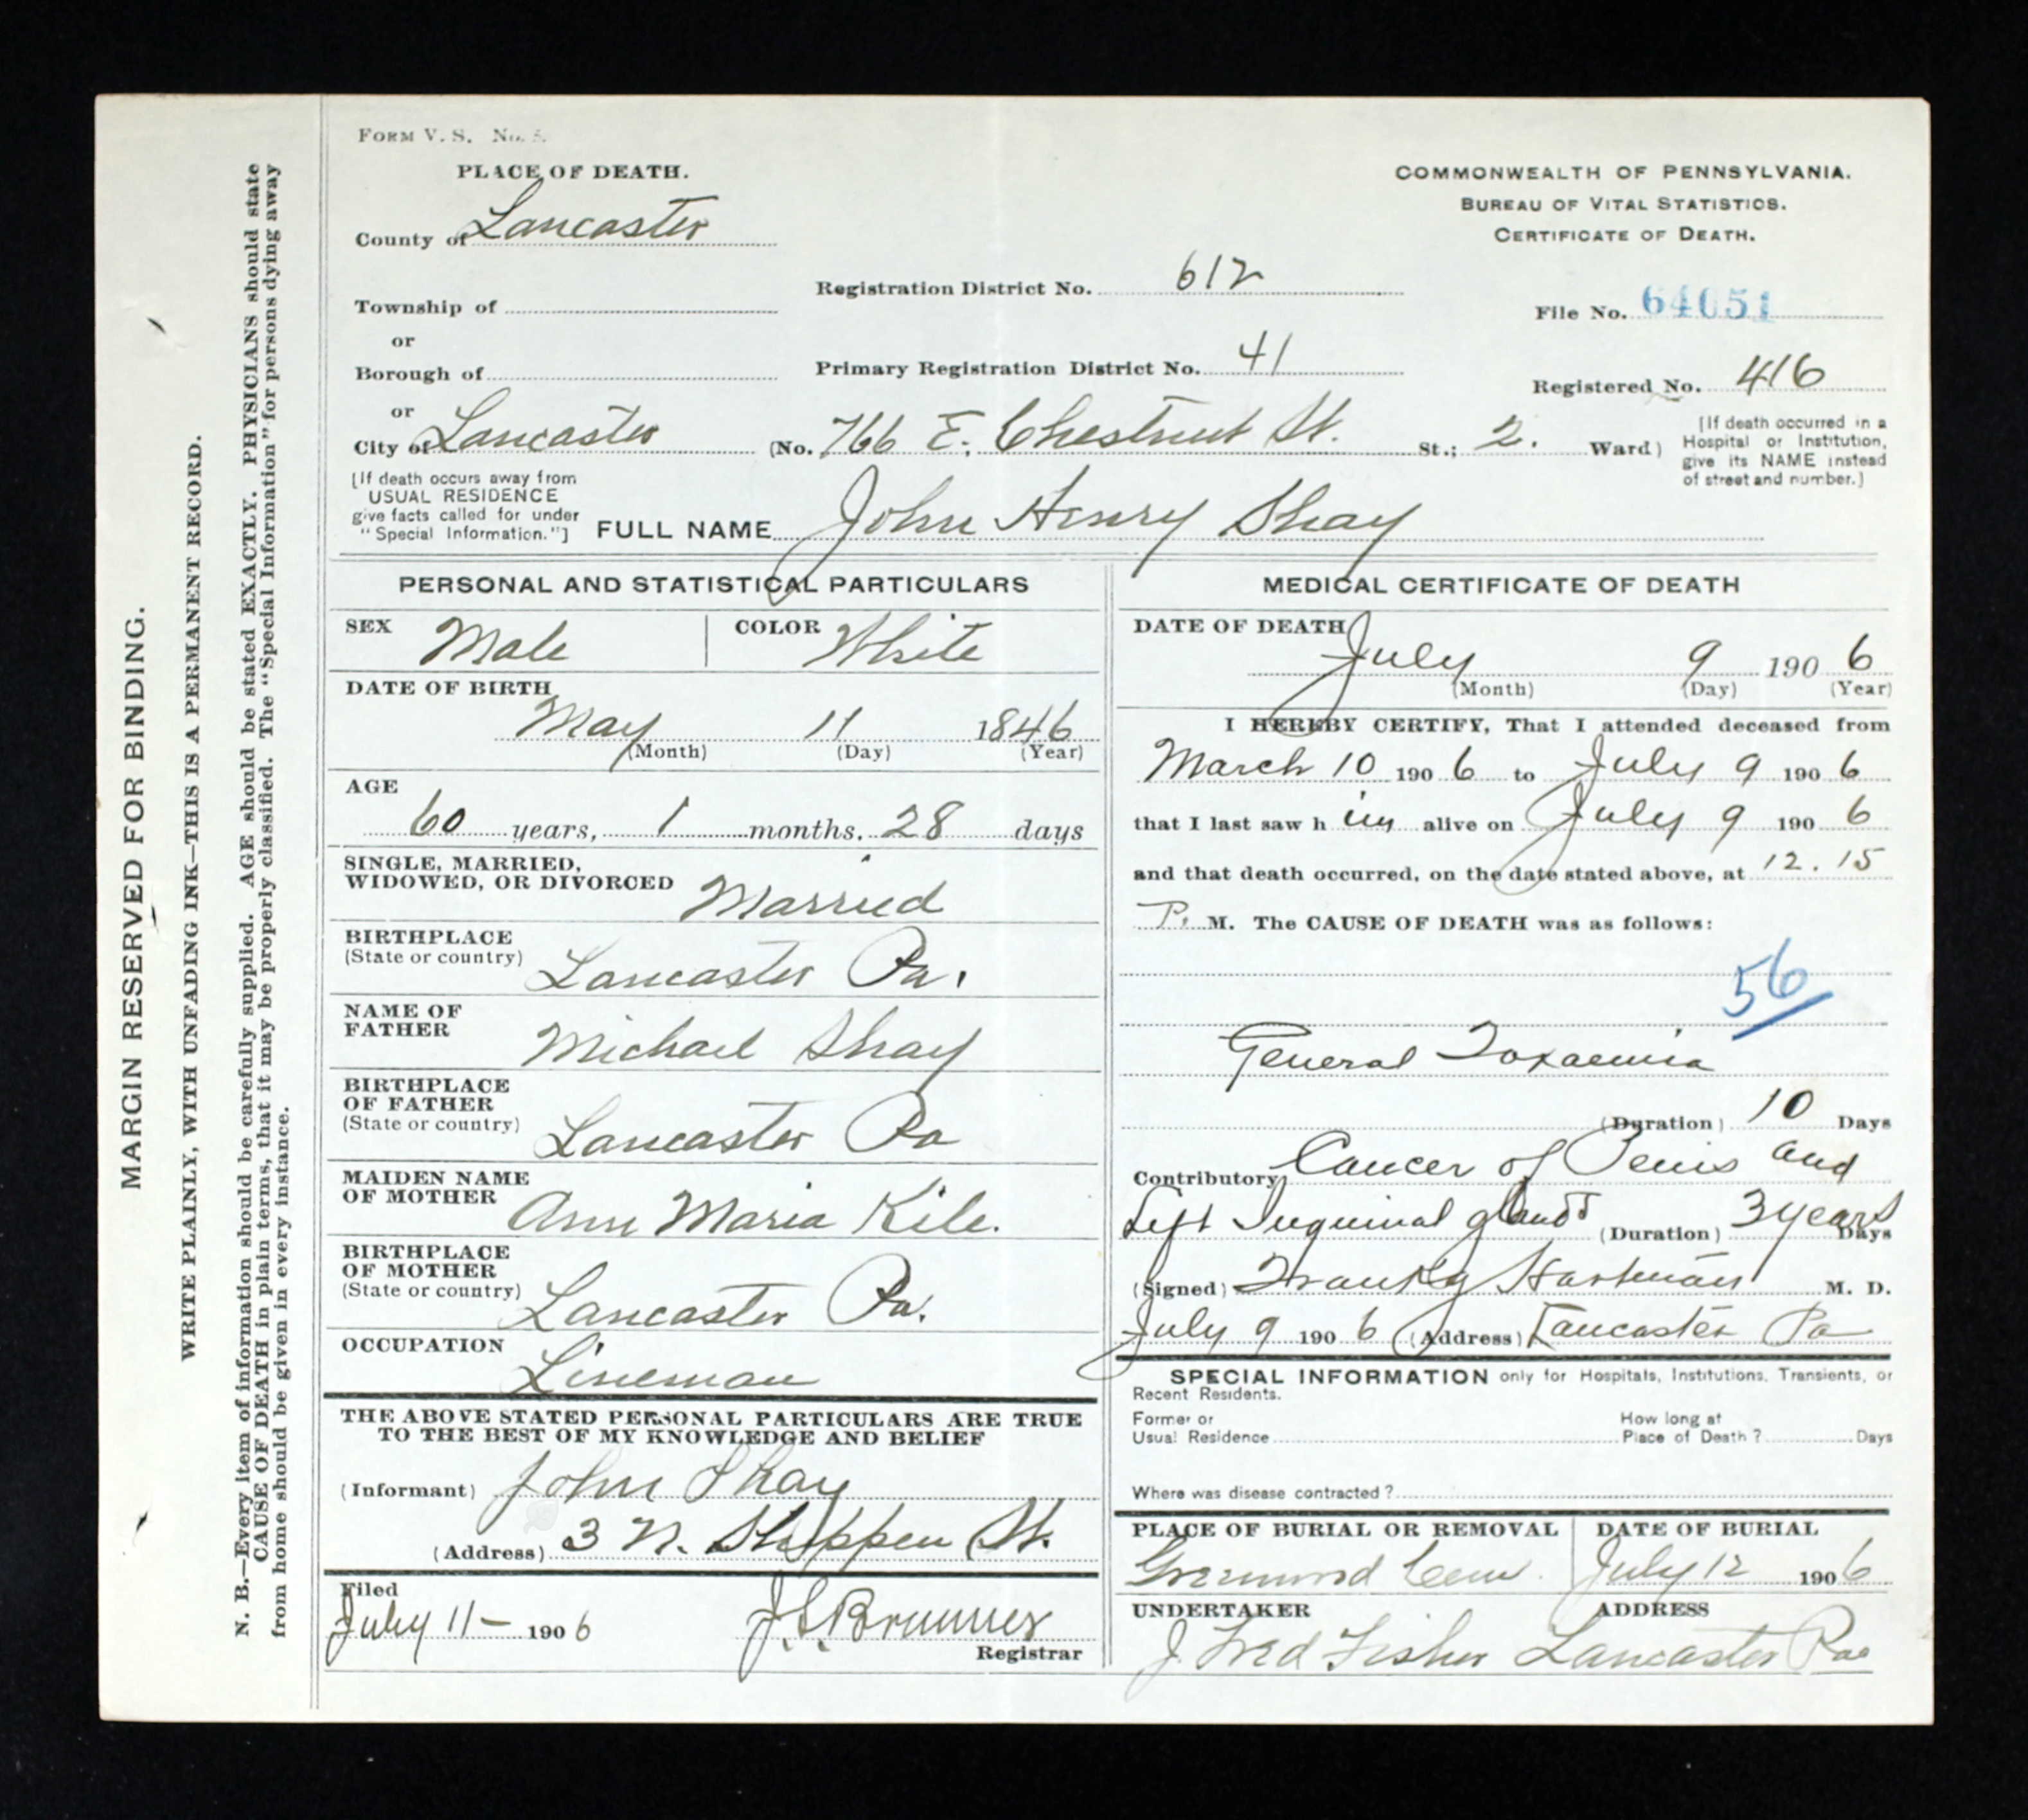 MARGIN RESERVED FOR BINDING.
WRITE PLAINLY, WITH UNFADING INK—THIS IS A PERMANENT RECORD.
N. B.—Every item of information should be carefully supplied. AGE should be stated EXACTLY. PHYSICIANS should state
CAUSE OF DEATH in plain terms, that it may be properly classified. The "Special Information" for persons dying away
from home should be given in every instance.
FORM V. S. No. 5.
PLACE OF DEATH.
County of Lancaster
Township of
or
Borough of
or
City of Lancaster
COMMONWEALTH OF PENNSYLVANIA.
BUREAU OF VITAL STATISTICS.
CERTIFICATE OF DEATH.
Registration District No. 612
File No. 64051
Primary Registration District No. 41
Registered No. 416
(No. 766 E. Chestnut St. St.; 2. Ward)
[If death occurred in a
Hospital or Institution,
give its NAME instead
of street and number.]
[If death occurs away from
USUAL RESIDENCE
give facts called for under
"Special Information."]
FULL NAME John Henry Shay
PERSONAL AND STATISTICAL PARTICULARS
SEX Male COLOR White
DATE OF BIRTH
May 11 1846
(Month) (Day) (Year)
AGE
60 years, 1 months, 28 days
SINGLE, MARRIED,
WIDOWED, OR DIVORCED Married
BIRTHPLACE
(State or country) Lancaster Pa.
NAME OF
FATHER Michael Shay
BIRTHPLACE
OF FATHER
(State or country) Lancaster Pa
MAIDEN NAME
OF MOTHER Ann Maria Kile.
BIRTHPLACE
OF MOTHER
(State or country) Lancaster Pa.
OCCUPATION
Lineman
THE ABOVE STATED PERSONAL PARTICULARS ARE TRUE
TO THE BEST OF MY KNOWLEDGE AND BELIEF
(Informant) John Shay
(Address) 3 N. Shippen St.
Filed
July 11- 1906 J. S. Brunner
Registrar
MEDICAL CERTIFICATE OF DEATH
DATE OF DEATH
July 9 1906
(Month) (Day) (Year)
I HEREBY CERTIFY, That I attended deceased from
March 10 1906 to July 9 1906
that I last saw him alive on July 9 1906
and that death occurred, on the date stated above, at 12.15
P. M. The CAUSE OF DEATH was as follows:
56
General Toxaemia
(Duration) 10 Days
Contributory Cancer of Penis and
Left Inguinal glands (Duration) 3 years Days
(Signed) Frank G Hartman M. D.
July 9 1906 (Address) Lancaster Pa
SPECIAL INFORMATION only for Hospitals, Institutions, Transients, or
Recent Residents.
Former or
Usual Residence
How long at
Place of Death? Days
Where was disease contracted?
PLACE OF BURIAL OR REMOVAL DATE OF BURIAL
Greenwood Cem. July 12 1906
UNDERTAKER ADDRESS
J. Fred Fisher Lancaster Pa